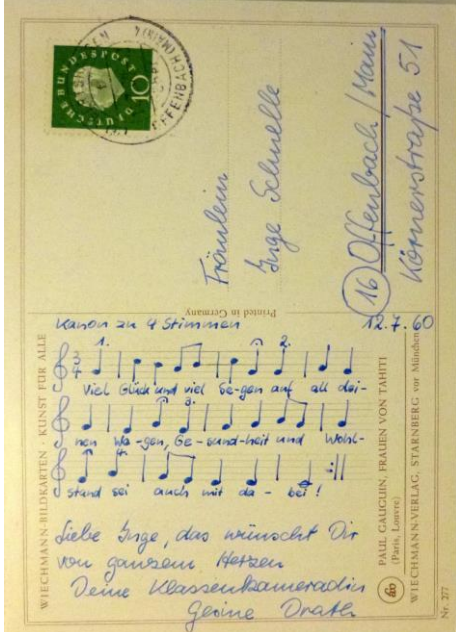 DEUTSCHE BUNDESPOST
10
OFFENBACH (MAIN) 4
Fräulein
Inge Schnelle
(16) Offenbach/Main
Körnerstraße 51
Printed in Germany
Kanon zu 4 Stimmen
12.7.60
1. 2.
3/4
Viel Glück und viel Se-gen auf all dei-
3.
nen We-gen, Ge-sund-heit und Wohl-
4.
stand sei auch mit da-bei!
Liebe Inge, das wünscht Dir
von ganzem Herzen
Deine Klassenkameradin
Drath
WIECHMANN-BILDKARTEN · KUNST FÜR ALLE
PAUL GAUGUIN, FRAUEN VON TAHITI
(Paris, Louvre)
WIECHMANN-VERLAG, STARNBERG vor München
60
Nr. 277